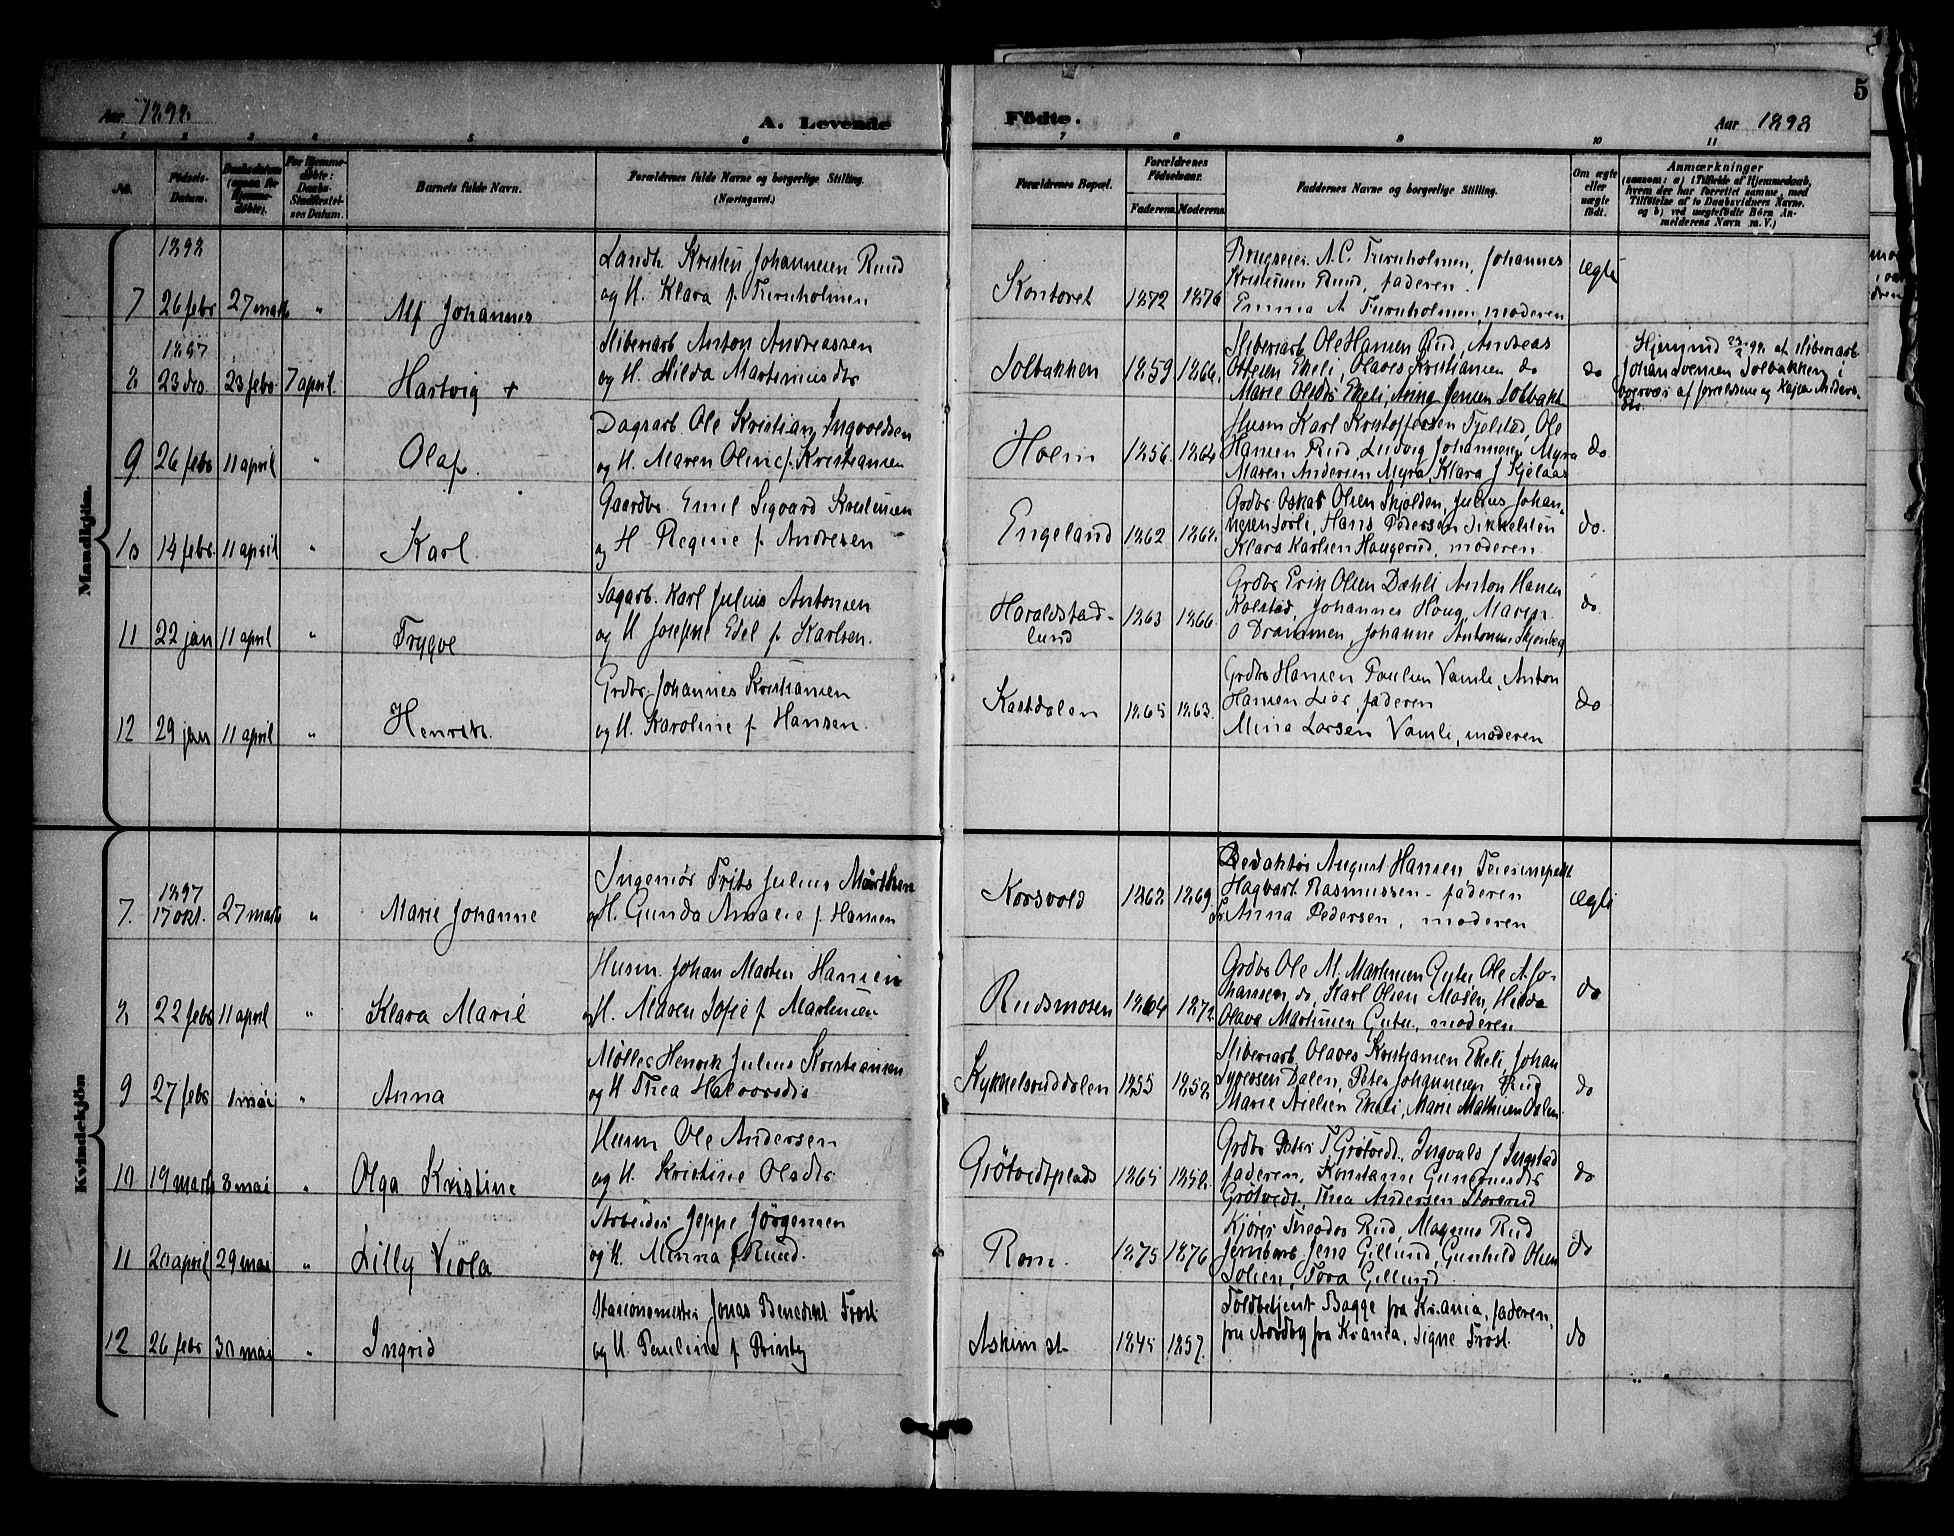 5
Aar 1898.
A. Levende
Födte.
Aar 1898
1 2 3 4 5 6 7 8 9 10 11
No.
Födsels-
Datum.
Daabsdatum
For Hjemme-
döbte:
Daabs-
Stadfæstel-
ses Datum.
Barnets fulde Navn.
Forældrenes fulde Navne og borgerlige Stilling.
(Næringsvei.)
Forældrenes Bopæl.
Forældrenes
Födselsaar.
Faderens. Moderens.
Faddernes Navne og borgerlige Stilling.
Om ægte
eller
uægte
födt.
Anmærkninger
(saasom: a) i Tilfælde af Hjemmedaab,
hvem der har forrettet samme, med
Tilföielse af to Daabsvidners Navne.
og b) ved uægtefödte Börn An-
melderens Navn m. V.)
Mandkjön.
1898
7 26 febr 27 marts " Alf Johannes
Landh. Kristen Johannesen Ruud
og H. Klara f. Furuholmen
Kontoret 1872 1876
Brugseier A. C. Furuholmen, Johannes
Kristensen Ruud, faderen.
Emma A Furuholmen, moderen
ægte
1897
8 23 des. 23 febr 7 april. Hartvig +
Sliberiarb Anton Andreassen
og H. Hilda Martiniusdtr
Solbakken 1859 1866.
Sliberiarb. Ole Hansen Rud, Andreas
Ottesen Ekeli, Olaves Kristiansen do
Marie Olsdtr Ekeli, Anna Jensen Solbakk.
do
Johan Svensen Solbakken i
overvær af forældrene og Kaja Anders-
dtr.
9 26 febr 11 april " Olaf.
Dagsarb. Ole Kristian Ingvoldsen
og H. Maren Oline f. Kristiansen
Holm 1856. 1864
Husm Karl Kristoffersen Fjelstad, Ole
Hansen Rud, Ludvig Johannesen Myra
Maren Andersen Myra, Klara J Kjelaas
do.
10 14 febr. 11 april " Karl.
Gaardbr. Emil Sigvard Kristensen
og H Regine f. Andresen
Engelund 1862 1868.
Grdbr Oskar Olsen Skjolden, Julius Johan-
nesen Sorli, Hans Pedersen Sikkelstun
Klara Karlsen Haugerud, moderen.
do.
11 22 jan 11 april " Trygve
Sagarb. Karl Julius Antonsen
og H Josefine Edel f. Karlsen.
Haraldstad-
lund
1863 1866.
Grdbr Erik Olsen Dæhli Anton Hansen
Kolstad, Johannes Houg, Maren
O Drammen, Johanne Antonsen Skjonberg
do.
12 29 jan 11 april " Henrik.
Grdbr. Johannes Kristiansen
og H. Karoline f. Hansen.
Kastdalen 1865 1863.
Grdbr Hansen Paulsen Vamli, Anton
Hansen Lier, faderen
Mina Larsen Vamli, moderen
do
Kvindekjön
1897
7. 17 okt. 27 marts " Marie Johanne
Ingeniør Frits Julius Mürthen
og H. Gunda Amalie f. Hansen
Korsvold 1862 1869.
Redaktør August Hansen
Hagbart Rasmussen - faderen
Fr. Anna Pedersen, moderen
ægte
8 22 febr 11 april " Klara Marie
Husm. Johan Martin Hansen
og H. Maren Sofie f. Martinsen
Rudsmosen 1864 1872.
Grdbr Ole M. Martinsen Guter Ole A. Jo-
hansen do, Karl Olsen Mosen, Hilda
Olava Martinsen Guter, moderen
do
9 27 febr 1 mai " Anna
Møller Henrik Julius Kristiansen
og H Thea Halvorsdtr
Kykkelsruddalen 1855 1858
Sliberiarb. Olaves Kristiansen Ekeli, Johan
Syversen Dalen, Peter Johannesen Rud
Marie Nielsen Ekeli, Marie Mathisen Dalen.
do
10 19 marts 8 mai " Olga Kristine
Husm Ole Andersen
og H. Kristine Olsdtr
Grötvedtplads 1865 1858.
Grdbr Peter T Grötvedt, Ingvald J Ingstad
faderen, Konstanse Gundersdtr
Grötvedt, Thea Andersen Storerud
do
11 20 april 29 mai " Lilly Viola
Arbeider Jeppe Jörgensen
og H. Minna f Ruud.
Rom. 1875 1876
Kjörer Theodor Rud, Magnus Rud
Jernbarb. Jens Gillund, Gunhild Olsen
Solien, Tora Gillund
do
12 26 febr 30 mai " Ingrid
Stasionsmester Jonas Benedikt Frost
og H. Pauline f. Brinby
Askim st. 1845 1857.
Toldbetjent Bagge fra Kr.ania, faderen,
fru Nordby fra Kr.ania, Signe Frost.
do